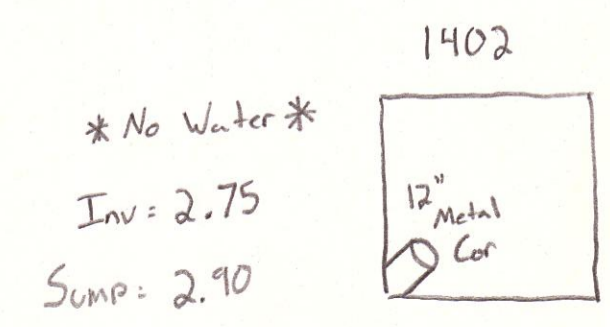 1402
* No Water *
Inv = 2.75
Sump: 2.90
12"
Metal
Cor